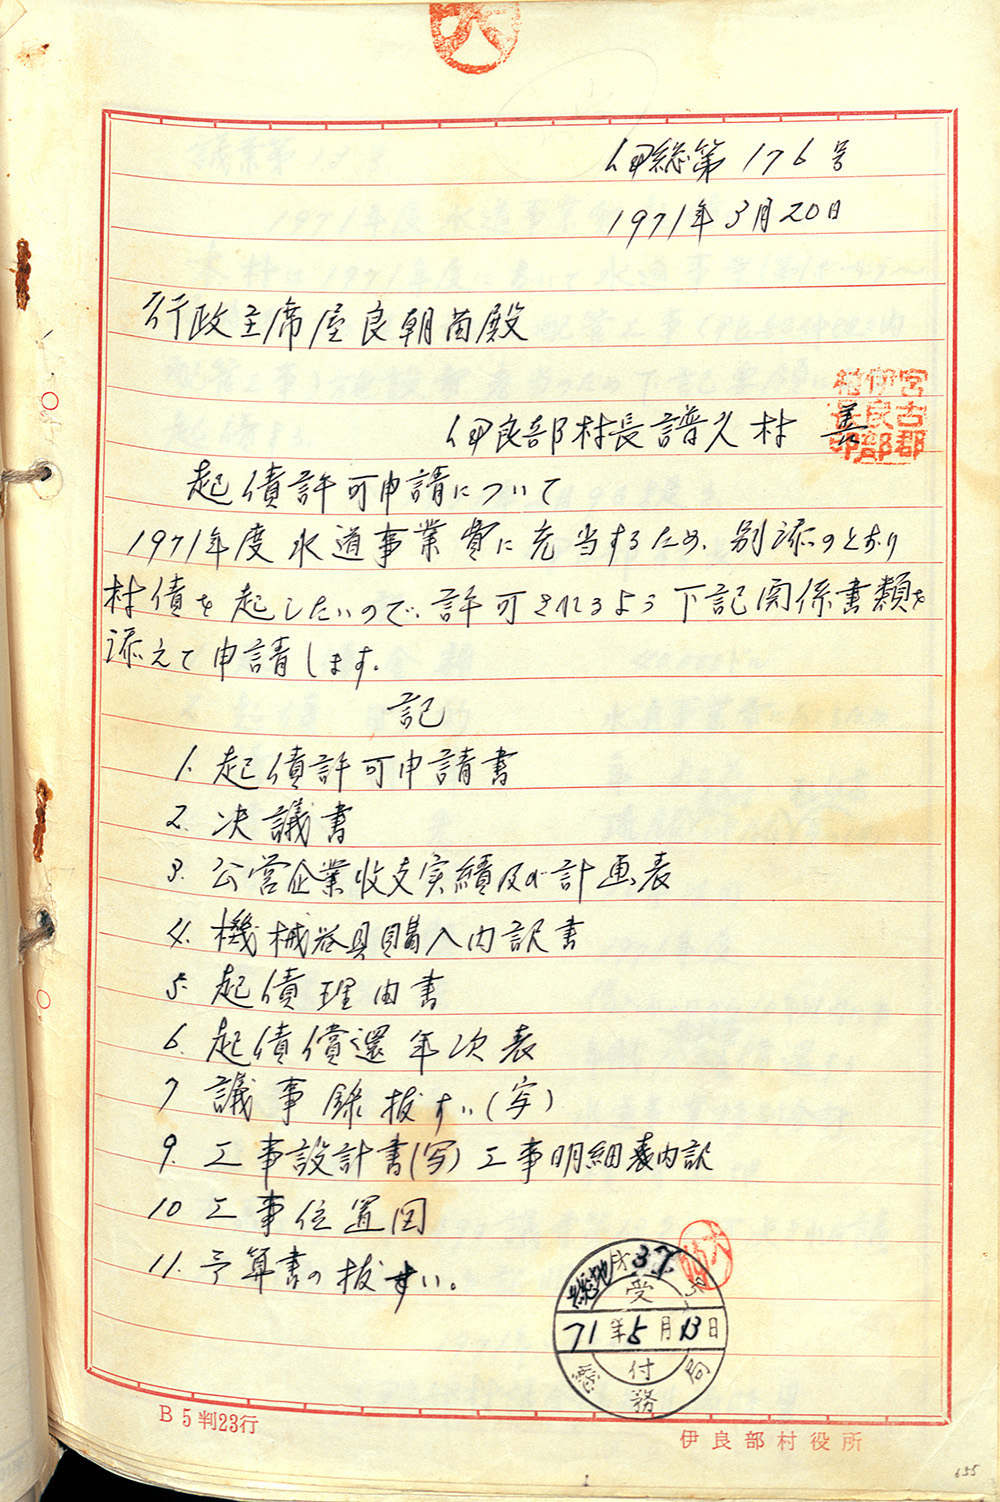 伊総第176号
1971年3月20日
行政主席屋良朝苗殿
伊良部村長譜久村 善
宮古郡
伊良部
村長印
起債許可申請について
1971年度水道事業費に充当するため、別添のとおり
村債を起したいので、許可されるよう下記関係書類を
添えて申請します。
記
1. 起債許可申請書
2. 決議書
3. 公営企業収支実績及び計画表
4. 機械器具購入内訳書
5. 起債理由書
6. 起債償還年次表
7 議事録抜すい(写)
9. 工事設計書(写)工事明細表内訳
10 工事位置図
11. 予算書の抜すい。
37
受
71年5月13日
付
総務局
B5判23行
伊良部村役所
655